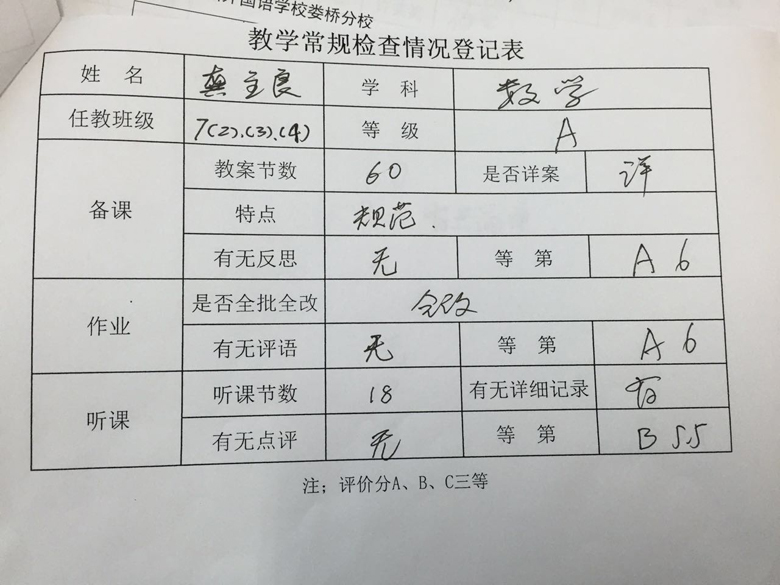 国语学校娄桥分校
教学常规检查情况登记表
姓 名 龚主良 学 科 数学
任教班级 7(2).(3).(4) 等 级 A
备课 教案节数 60 是否详案 详
特点 规范.
有无反思 无 等 第 A 6
作业 是否全批全改 全改
有无评语 无 等 第 A 6
听课 听课节数 18 有无详细记录 有
有无点评 无 等 第 B 5.5
注；评价分A、B、C三等